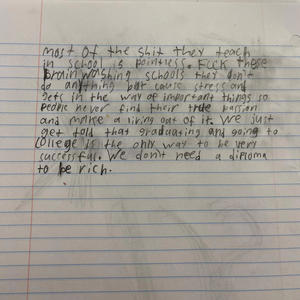 most of the shit they teach
in school is pointless. Fuck these
brainwashing schools they don't
do anything but cause stress and
gets in the way of important things so
people never find their true passion
and make a living out of it. We just
get told that graduating and going to
college is the only way to be very
successful. We don't need a diploma
to be rich.